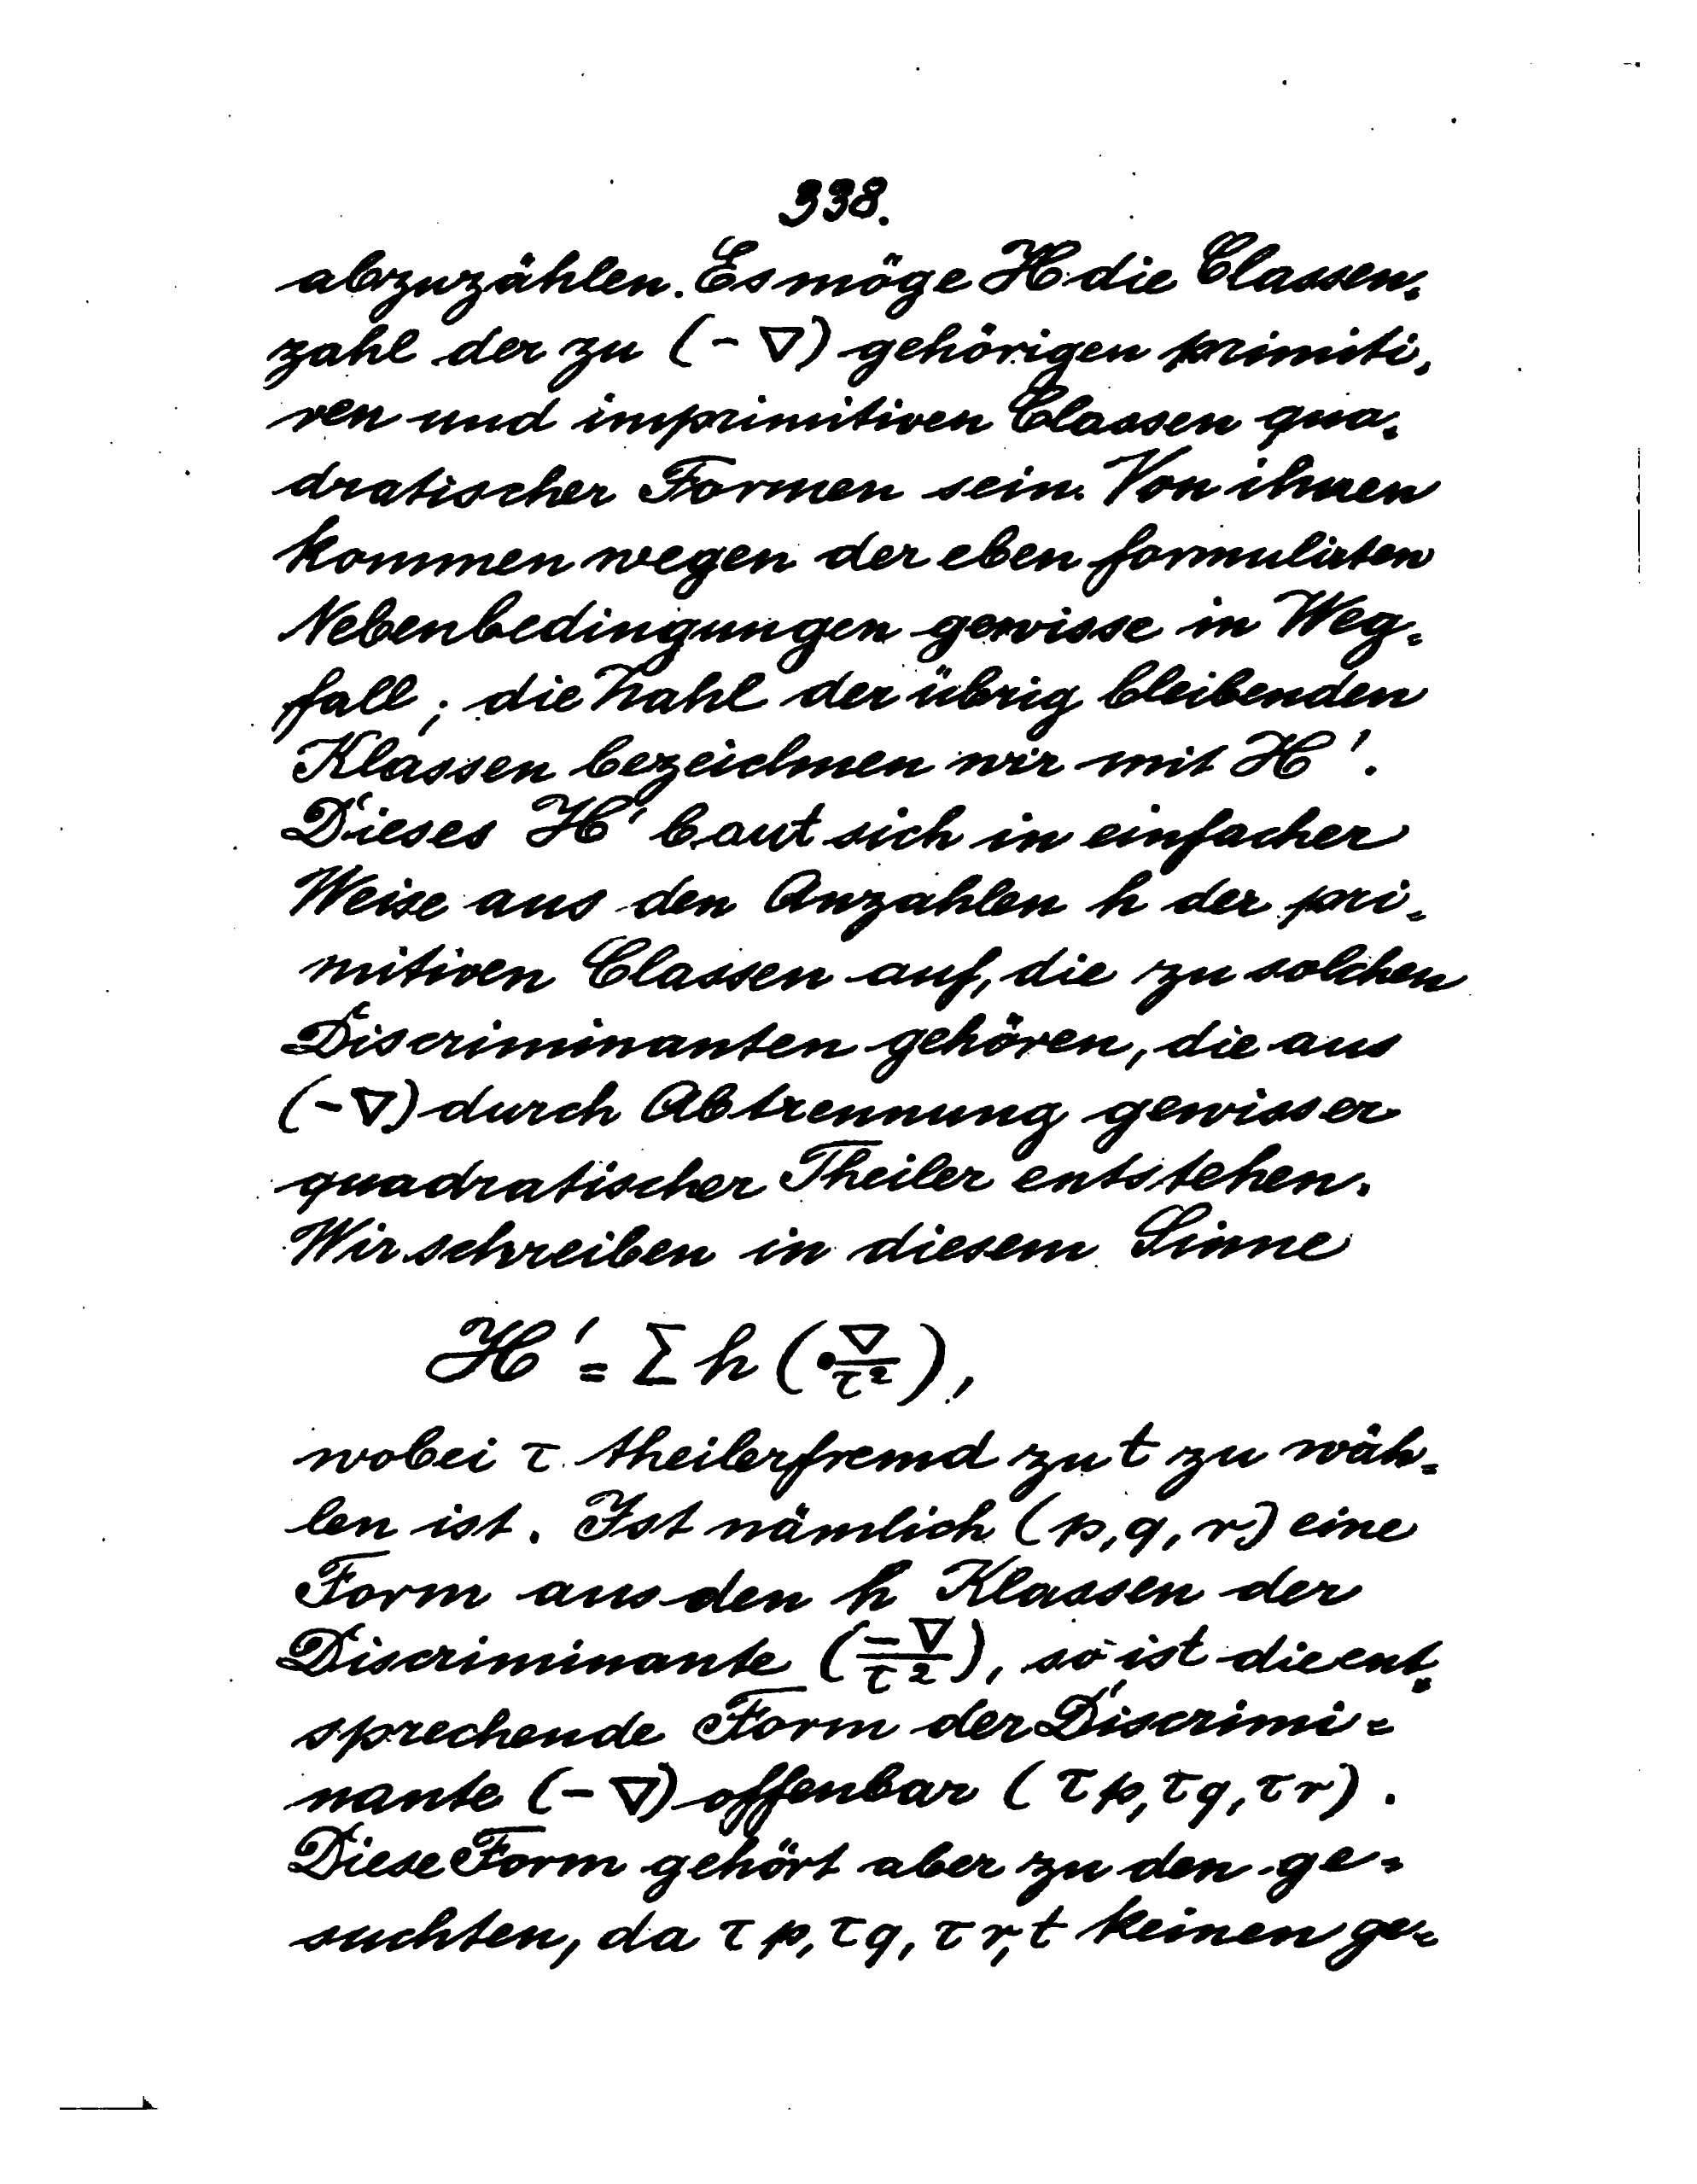 338.
abzuzählen. Es möge H die Classen=
zahl der zu (-∇) gehörigen primiti=
ven und imprimitiven Classen qua=
dratischer Formen sein. Von ihnen
kommen wegen der eben formulirten
Nebenbedingungen gewisse in Weg=
fall; die Zahl der übrig bleibenden
Klassen bezeichnen wir mit H'.
Dieses H' baut sich in einfacher
Weise aus den Anzahlen h der pri=
mitiven Classen auf, die zu solchen
Discriminanten gehören, die aus
(-∇) durch Abtrennung gewisser
quadratischer Theiler entstehen.
Wir schreiben in diesem Sinne
H' = Σ h (∇/τ²),
wobei τ theilerfremd zu t zu wäh=
len ist. Ist nämlich (p, q, r) eine
Form aus den h Klassen der
Discriminante (-∇/τ²), so ist die ent=
sprechende Form der Discrimi=
nante (-∇) offenbar (τp, τq, τr).
Diese Form gehört aber zu den ge=
suchten, da τp, τq, τr, t keinen ge=